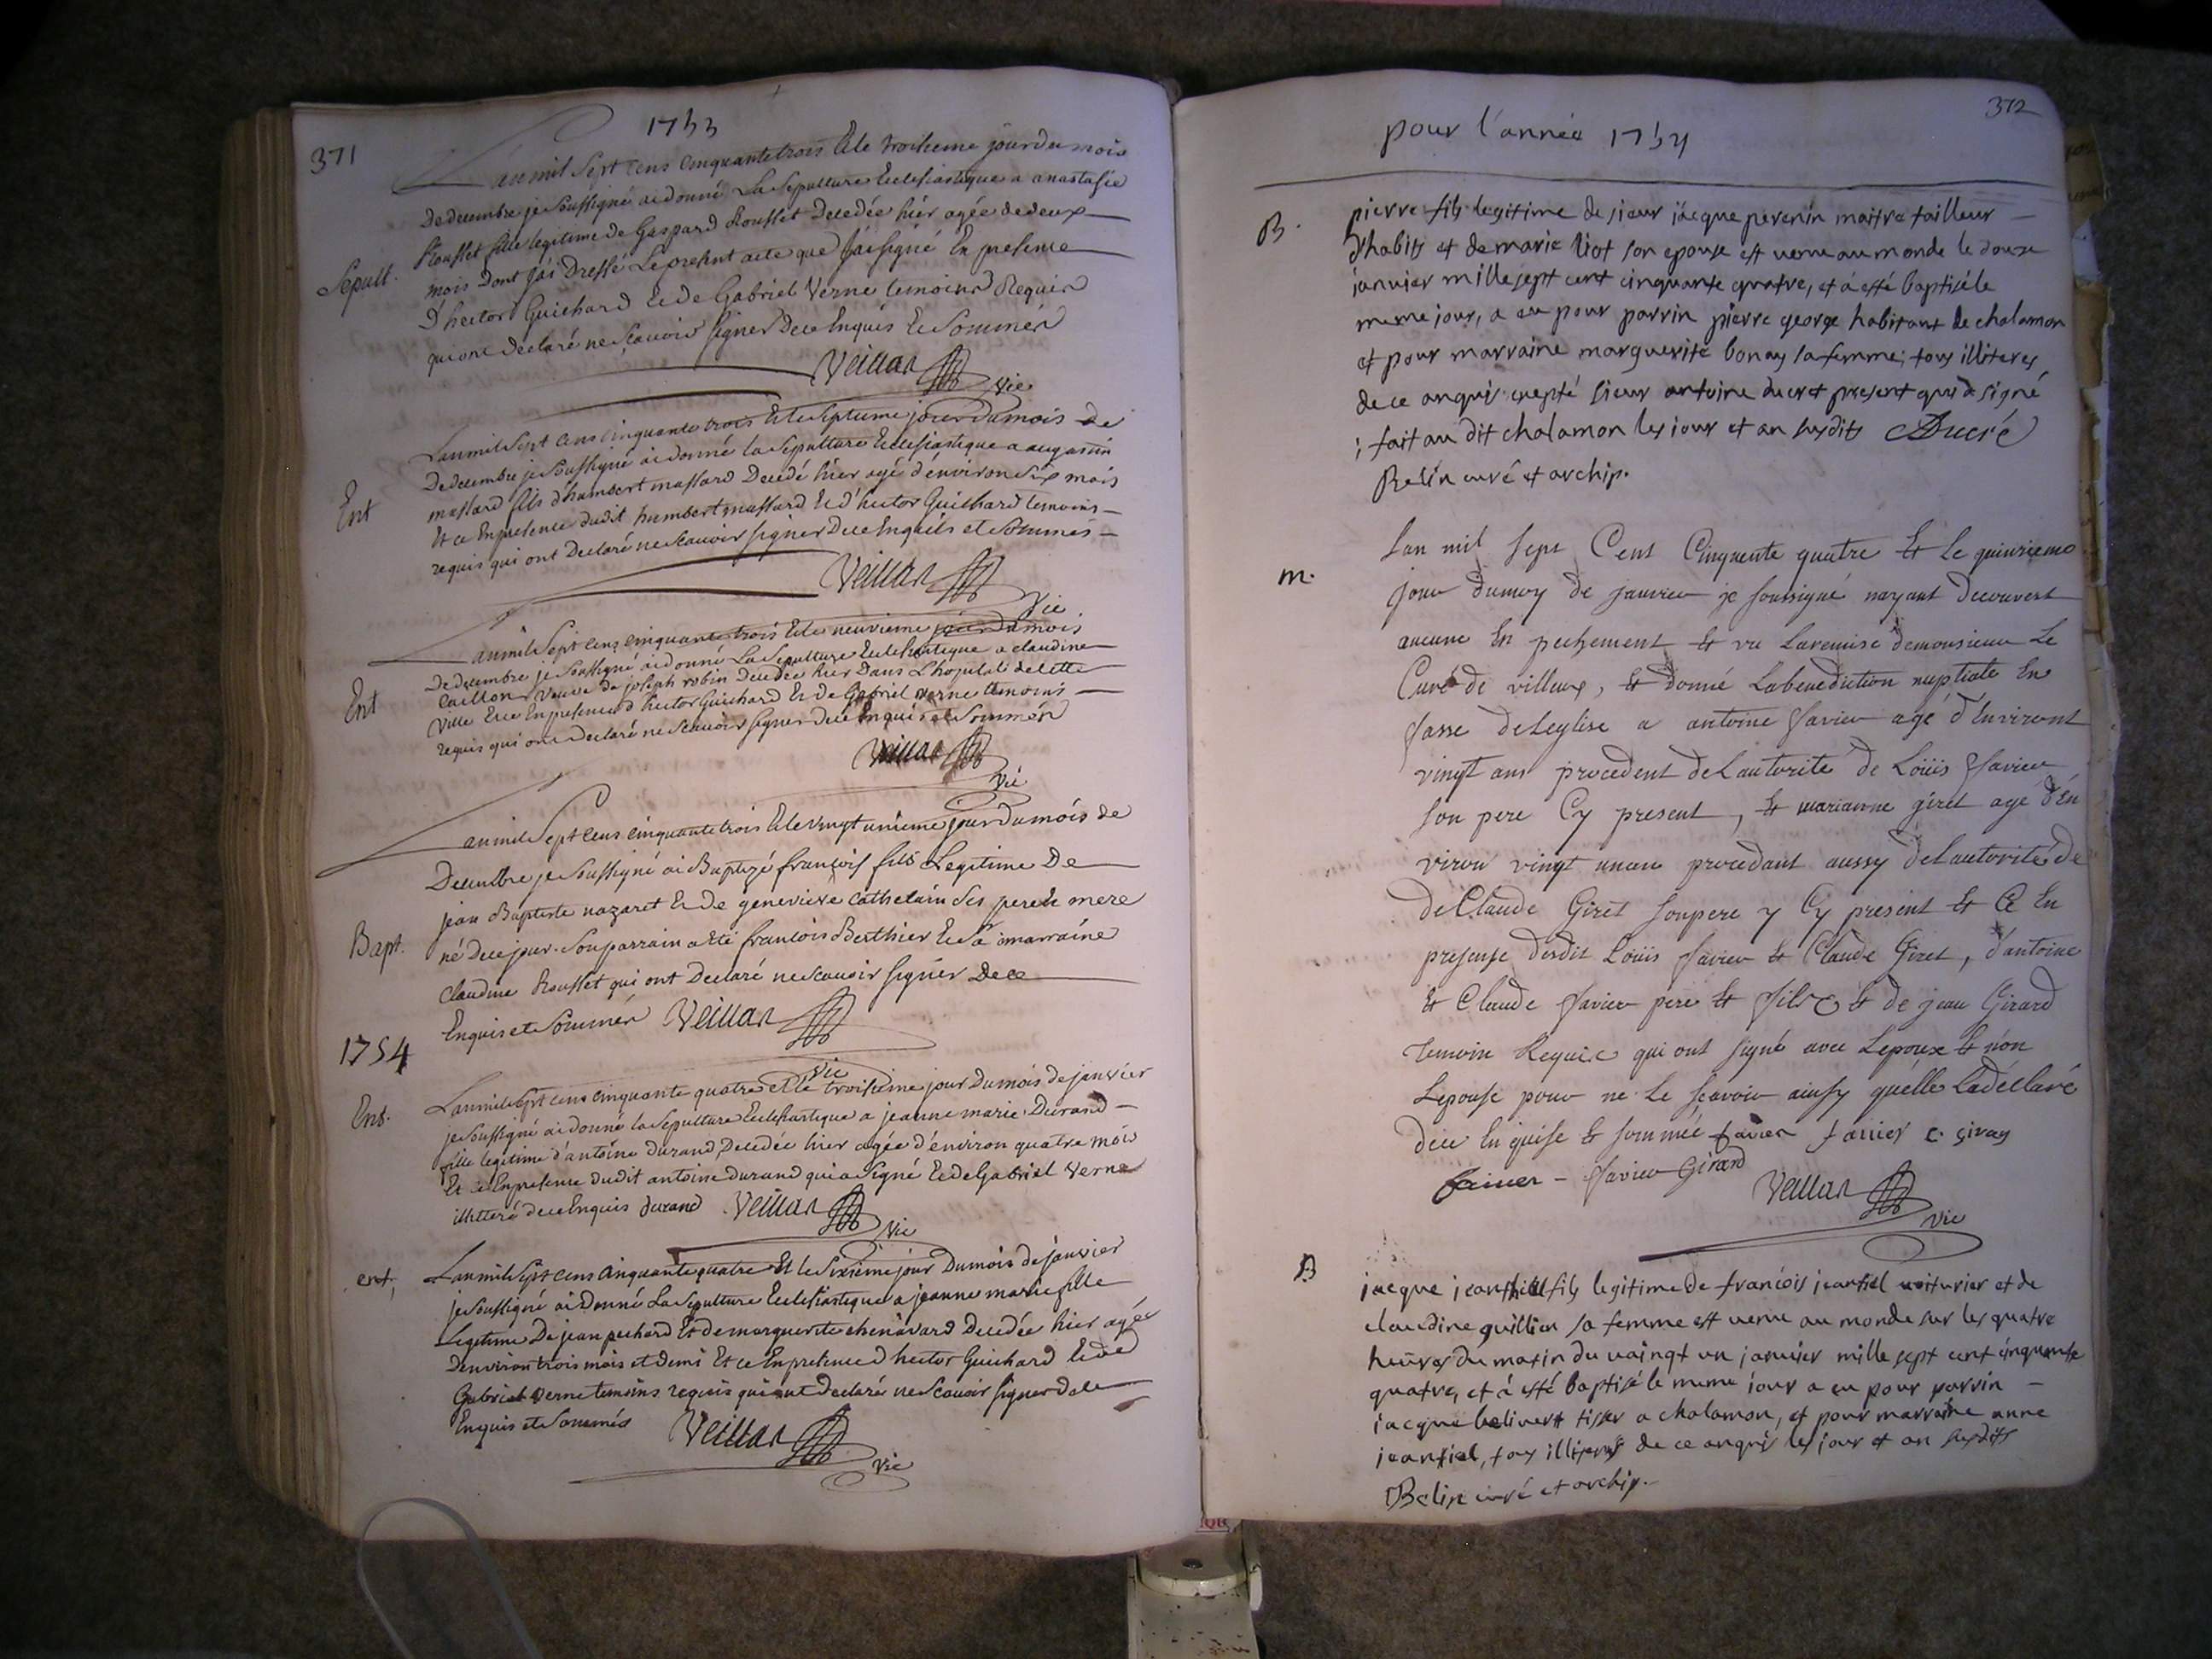 371
1753
Lanmil Sept cens cinquante trois Et le troisieme jour du mois
De decembre je Soussigné ai donné La Sepulture Ecclesiastique a anastasie
Sepult.
Rousset fille legitime de Gaspard Rousset Decedée hier agée de deux
mois Dont J'ai Dressé Le present acte que J'ai signé En presence
D'hector Guichard Et de Gabriel Verne temoins Requis
qui ont declaré ne Scavoir signer De ce Enquis Et Sommés
Veillas
Vic
Lanmil Sept cens cinquante trois Et le Septieme jour du mois de
De decembre je Soussigné ai donné la Sepulture Ecclesiastique a augustin
Ent
massard fils d'humbert massard Decedé hier agé d'environ Six mois
Et ce En presence dudit humbert massard Et d'hector Guichard temoins
requis qui ont Declaré ne Scavoir signer De ce Enquis et Sommés
Veillas
Vic
Lanmil Sept cens cinquante trois Et le neuvieme jour Du mois
De decembre je Soussigné ai donné La Sepulture Ecclesiastique a claudine
Ent
Caillon Veuve de joseph robin Decedée hier Dans L'hopital de cette
Ville Et ce En presence d'hector Guichard Et de Gabriel verne temoins
requis qui ont declaré ne Scavoir signer De ce Enquis et Sommés
Veillas
Vic
Lanmil Sept cens cinquante trois Et le vingt unieme jour Du mois de
Decembre je Soussigné ai Baptizé françois fils Legitime De
jean Baptiste nazaret Et De genevieve cathelain Ses pere Et mere
Bapt.
né De ce jour. Son parrain a Eté francois Berthier Et Sa marraine
claudine Rousset qui ont Declaré ne Scavoir Signer De ce
Enquis et Sommés Veillas
Vic
1754
Ent.
Lanmil Sept cens cinquante quatre et le troisieme jour Du mois de janvier
je Soussigné ai donné la Sepulture Ecclesiastique a jeanne marie Durand
fille legitime d'antoine Durand Decedée hier agée d'environ quatre mois
Et ce En presence dudit antoine Durand qui a Signé Et de Gabriel Verne
illitteré de ce Enquis Durand Veillas
Vic
ent,
Lanmil Sept cens cinquante quatre Et le Sixieme jour Du mois de janvier
je Soussigné ai Donné La Sepulture Ecclesiastique a jeanne marie fille
Legitime De jean pechard Et de marguerite chenavard Decedée hier agée
D'environ trois mois et demi Et ce En presence d'hector Guichard Et de
Gabriel verne temoins requis qui ont declaré ne Scavoir signer De ce
Enquis et Sommés Veillas
Vic
372
pour l'année 1754
B.
pierre fils legitime de sieur jacque perenin maitre tailleur
d'habits et de marie liot son epouse est venu au monde le douze
janvier mille sept cent cinquante quatre, et á esté baptisé le
meme jour, a eu pour parrin pierre george habitant de chalamon
et pour marraine marguerite bonay sa femme; tous illiteres
de ce anquis exepté sieur antoine ducret present qui a signé
; fait au dit chalamon les jour et an susdits Ducré
Belin curé et archip.
m.
Lan mil Sept Cent Cinquente quatre Et Le quinzieme
jour dumoy de janvier je soussigné nayant decouvert
aucune En pechement Et vu Laremise demonsieur Le
Curé de villeux, Et donné Labenediction nuptiale En
fasse deLeglise a antoine favier agé d'Environt
vingt ans procedent deLautorité de Loüis favier
son pere Cy present, Et marianne giret agé d'En
viron vingt unan procedant aussy delautorité de
de Claude Giret sonpere y Cy present Et Ce En
presense desdit Loüis favier Et Claude Giret, d'antoine
Et Claude favier pere Et fils Et de jean Girard
temoin Requis qui ont signé avec Lepoux Et non
Lepouse pour ne Le scavoir ainsy quelle Ladeclaré
dece En quise Et sommée favier favier c. giray
favier - favier Girard
Veillas
Vic
B
jacque jeantiel fils legitime de francois jeantiel voiturier et de
claudine guillier sa femme est venu au monde sur les quatre
heures du matin du vaingt un janvier mille sept cent cinquante
quatre, et á esté baptisé le meme jour a eu pour parrin
jacque belivert tisser a chalamon, et pour marraine anne
jeantiel, tous illiteres de ce anquis les jour et an susdits
Belin curé et archip.